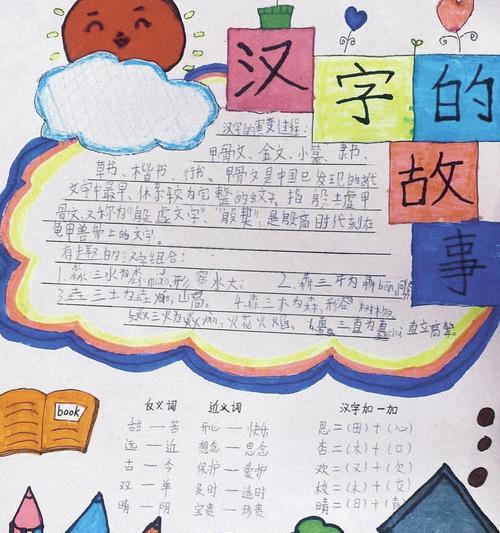 汉字的故事
汉字的演变过程：
甲骨文、金文、小篆、隶书、
草书、楷书、行书。甲骨文是中国已发现的古代
文字中最早、体系较为完整的文字。指殷土虚甲
骨文，又称为“殷虚文字”、“殷契”，是殷商时代刻在
龟甲兽骨上的文字。
有趣的汉字组合：
1.淼：三水为淼miǎo，形容水大； 2.犇三牛为犇bēn，同奔
3.垚三土为垚yáo，山高。 4.森三木为森，形容树木
5.焱三火为焱yàn，火花火焰。 6.矗三直为矗chù直立高耸。
book
反义词 近义词 汉字加一加
甜—苦 开心—快乐 思=(田)+(心)
远—近 想念—思念 杏=(木)+(口)
古—今 保护—爱护 欢=(又)+(欠)
双—单 及时—适时 校=(木)+(交)
晴—阴 宝贵—珍贵 晴=(日)+(青)